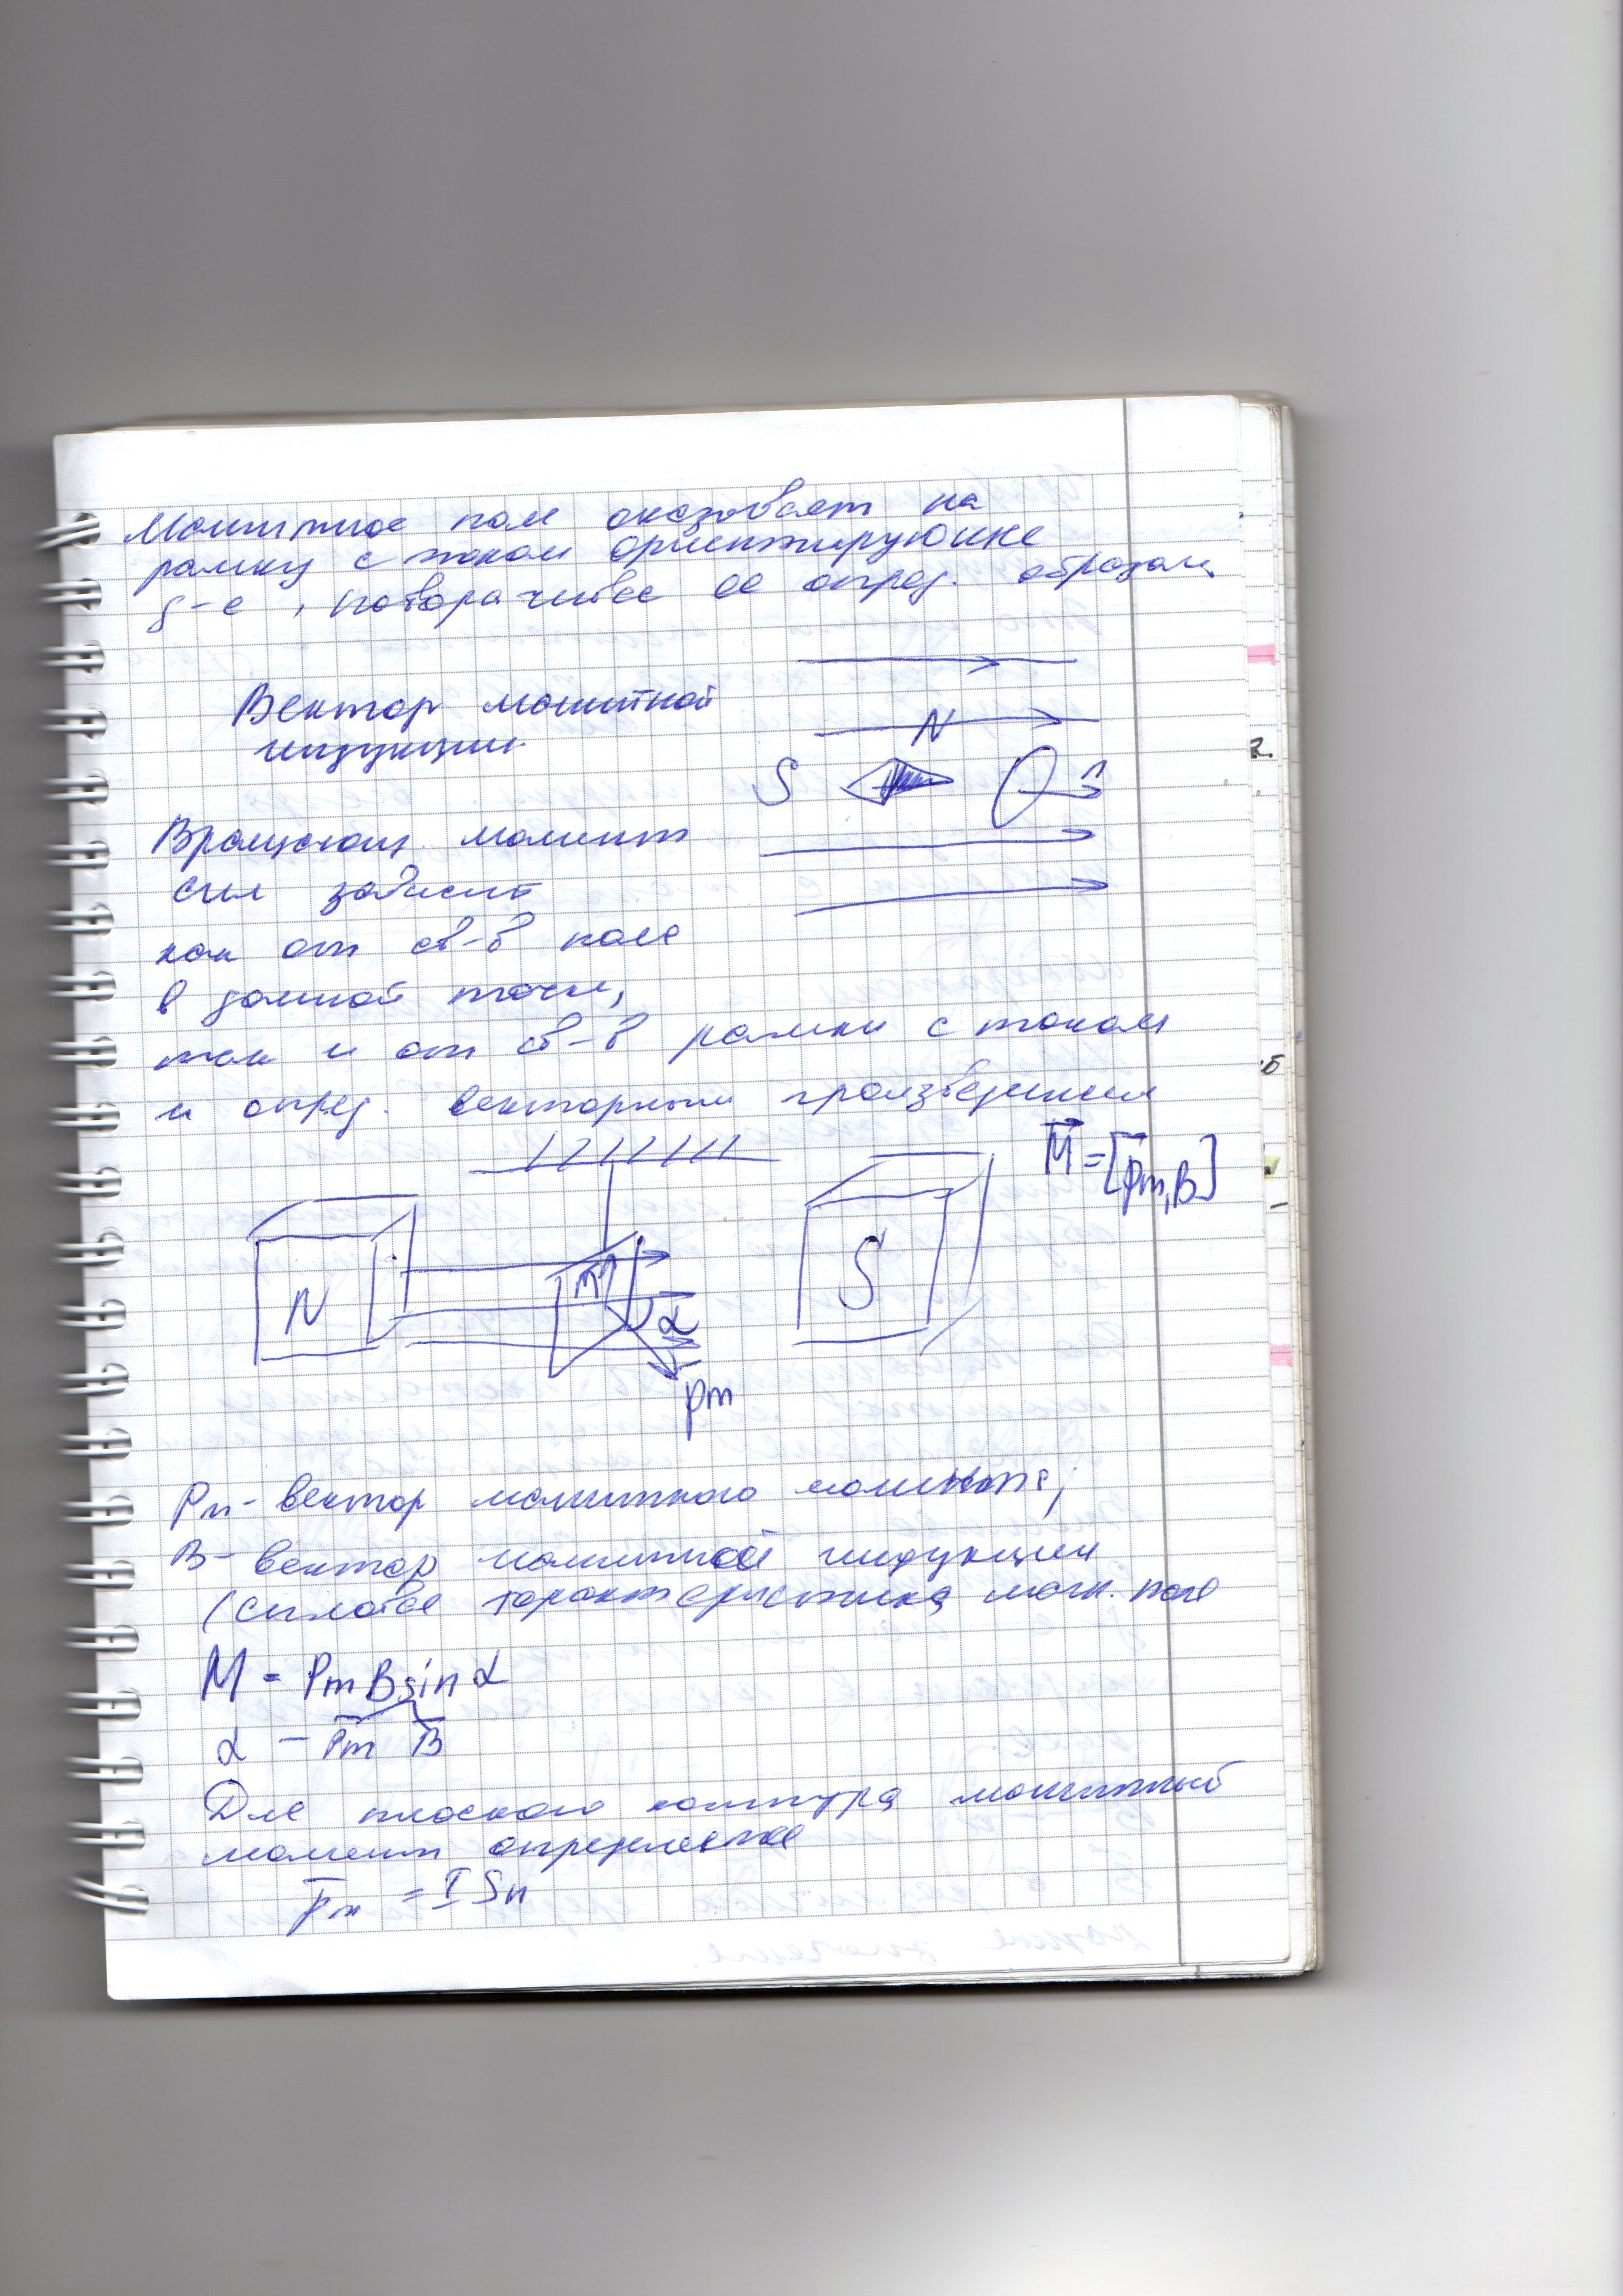 Магнитное поле оказывает на
рамку с током ориентирующее
д-е, поворачивая ее опред. образом
Вектор магнитной
индукции
N
S
n
Вращающ. момент
сил зависит
как от св-в поля
в данной точке,
так и от св-в рамки с током
и опред. векторным произведением
M = [pm, B]
N
S
n
α
pm
Pm - вектор магнитного момента;
B - вектор магнитной индукции
(силовая характеристика магн. поля
M = Pm B sin α
α - Pm B
Для плоского контура магнитный
момент определяется
Pm = I S n